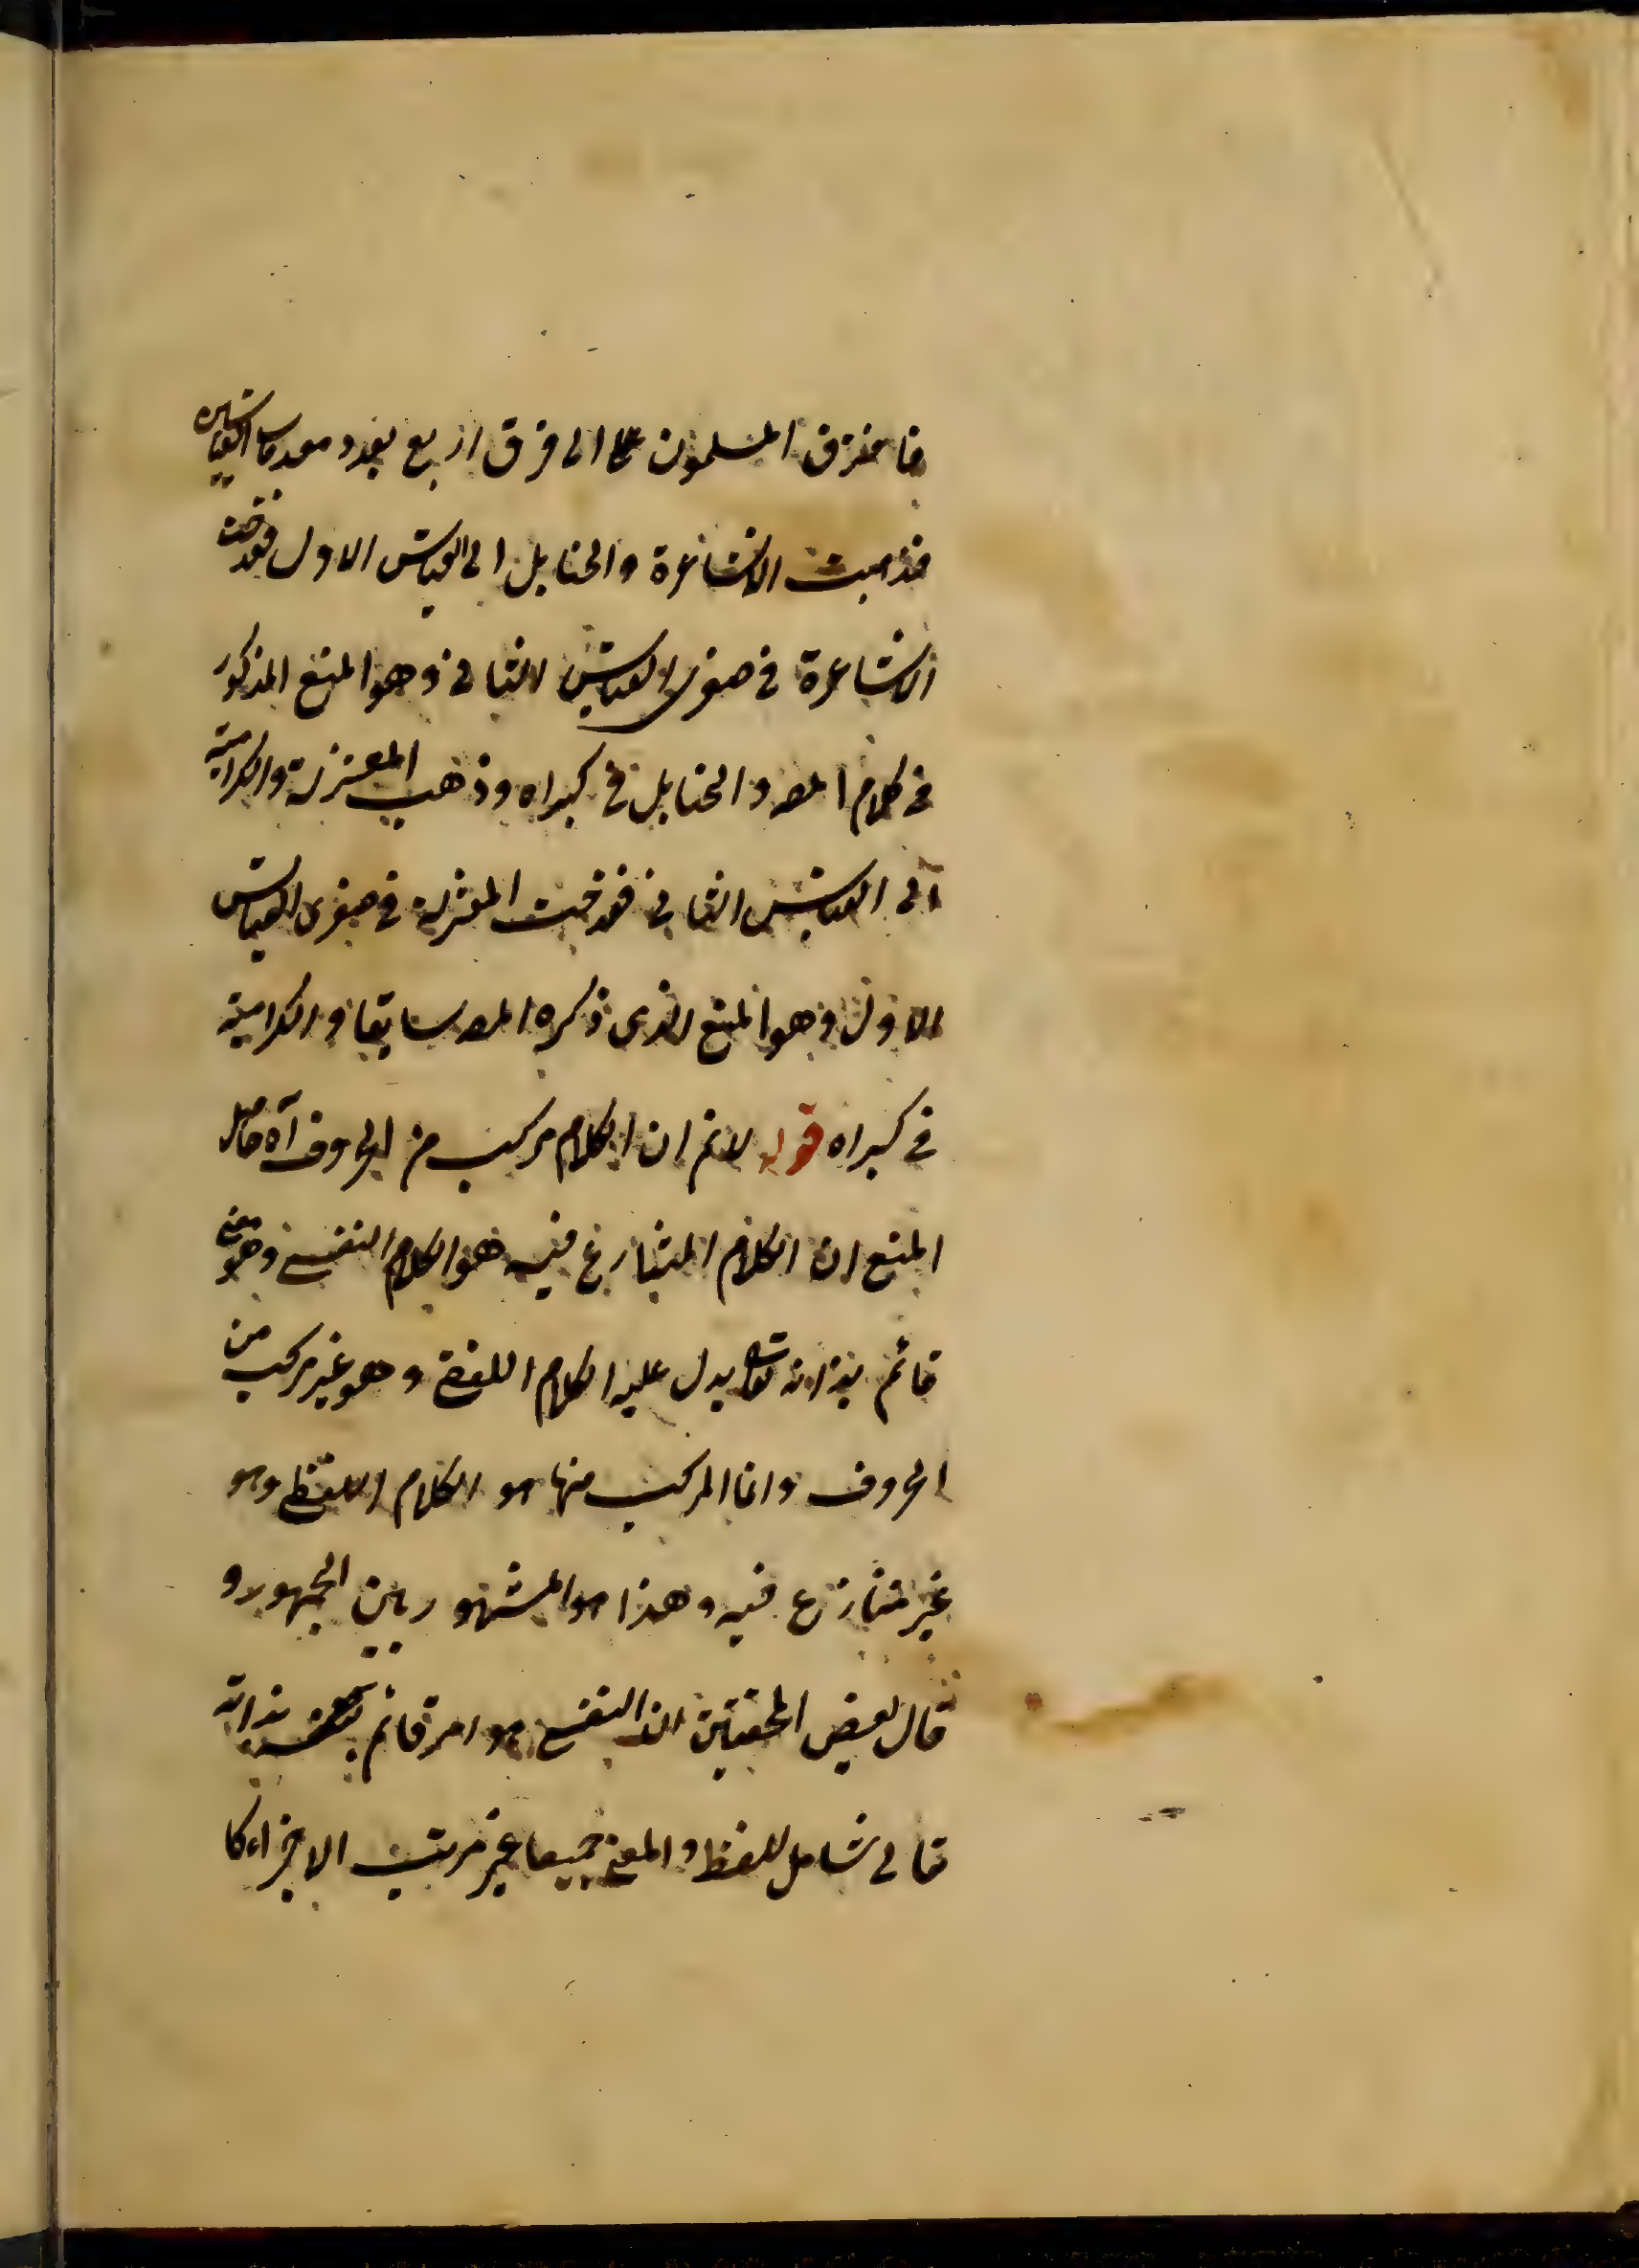 فافترق المسلمون الى فرق اربع بعدد مقدمات القياسين
فذهبت الاشاعرة والحنابل الى القياس الاول فقدحت
الاشاعرة فى صغرى القياس الثانى وهو المنع المذكور
فى كلام المصـ والحنابل فى كبراه وذهب المعتزلة والكرامية
الى القياس الثانى فقدحت المعتزلة فى صغرى القياس
الاول وهو المنع الذى ذكره المصـ سابقا والكرامية
فى كبراه قوله لانم ان الكلام مركب من الحروف آه حاصل
المنع ان الكلام المتنازع فيه هو الكلام النفسى وهو معنى
قائم بذاته تعا يدل عليه الكلام اللفظى وهو غير مركب من
الحروف وانما المركب منها هو الكلام اللفظى وهو
غير متنازع فيه وهذا هو المشهور بين الجمهور و
قال بعض المحققين ان النفسى هو امر قائم بذاته
تعالى شامل للفظ والمعنى جميعا غير مرتب الاجزاء كا